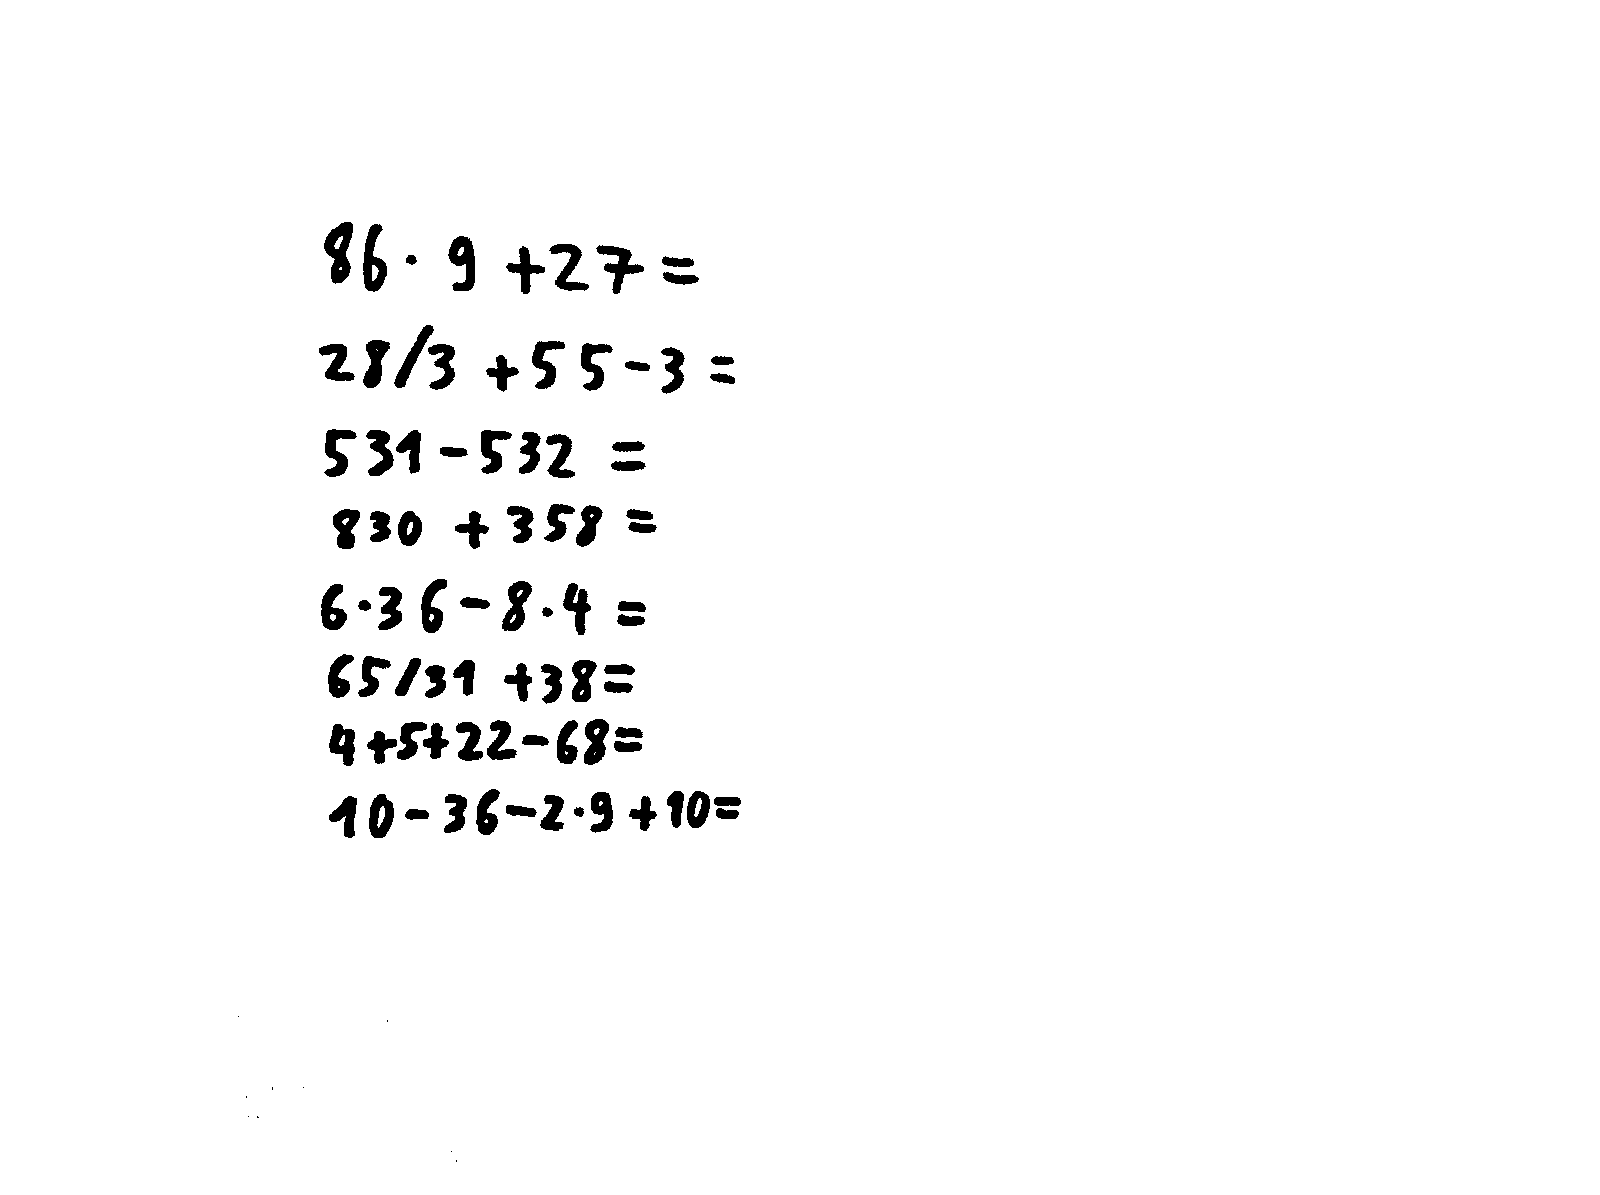 86· 9 +27=
28/3 +55-3=
531-532 =
830 + 358 =
6·36-8·4 =
65/31 +38=
4+5+22-68=
10-36-2·9+10=